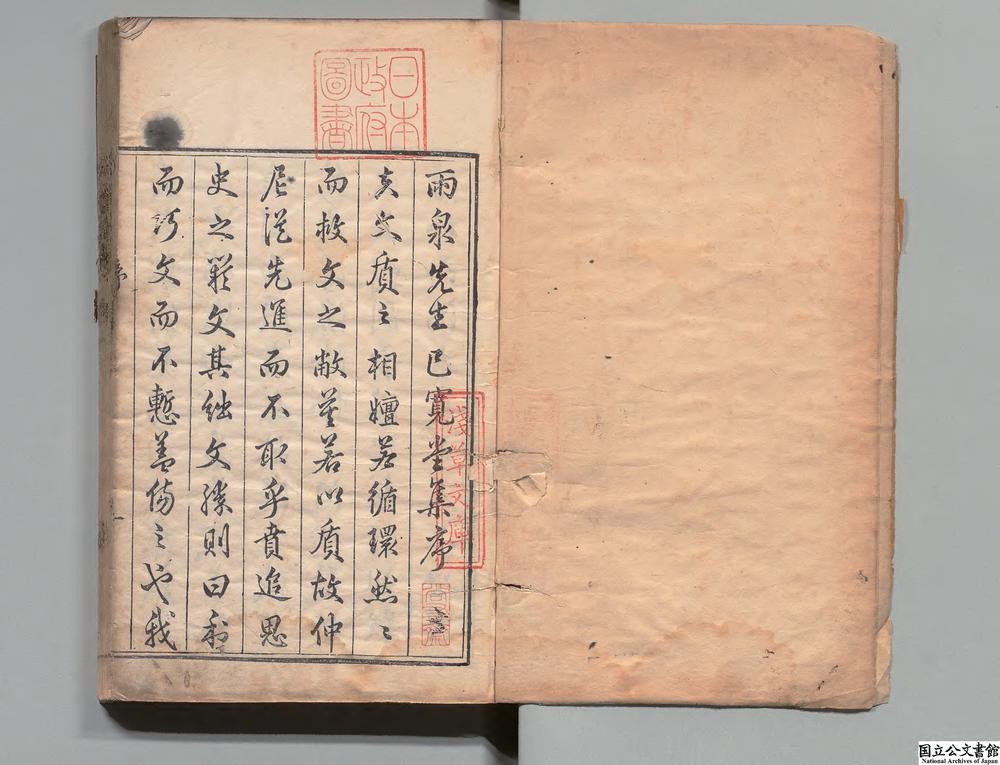 雨泉先生已寬堂集序
夫文質之相嬗若循環然〻
而救文之敝莫若以質故仲
尼從先進而不取乎賁追思
史之闕文其絀文勝則曰利
而巧文而不慙葢傷之也我
序
一
日本政府圖書
淺草文庫
国立公文書館
National Archives of Japan